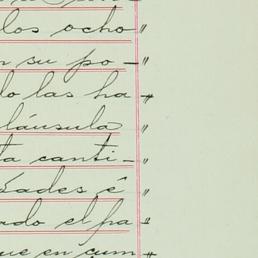 los ocho "
n su po- "
do las ha "
láusula "
ta canti- "
dades é "
ado el pa "
ue en cum "